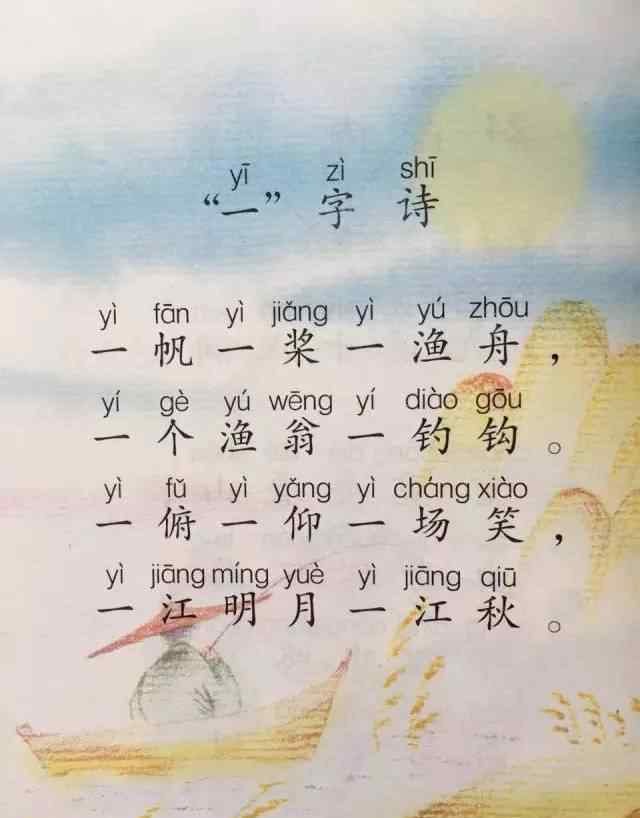 yī zì shī
“一”字诗
yì fān yì jiǎng yì yú zhōu
一帆一桨一渔舟，
yí gè yú wēng yí diào gōu
一个渔翁一钓钩。
yì fǔ yì yǎng yì cháng xiào
一俯一仰一场笑，
yì jiāng míng yuè yì jiāng qiū
一江明月一江秋。